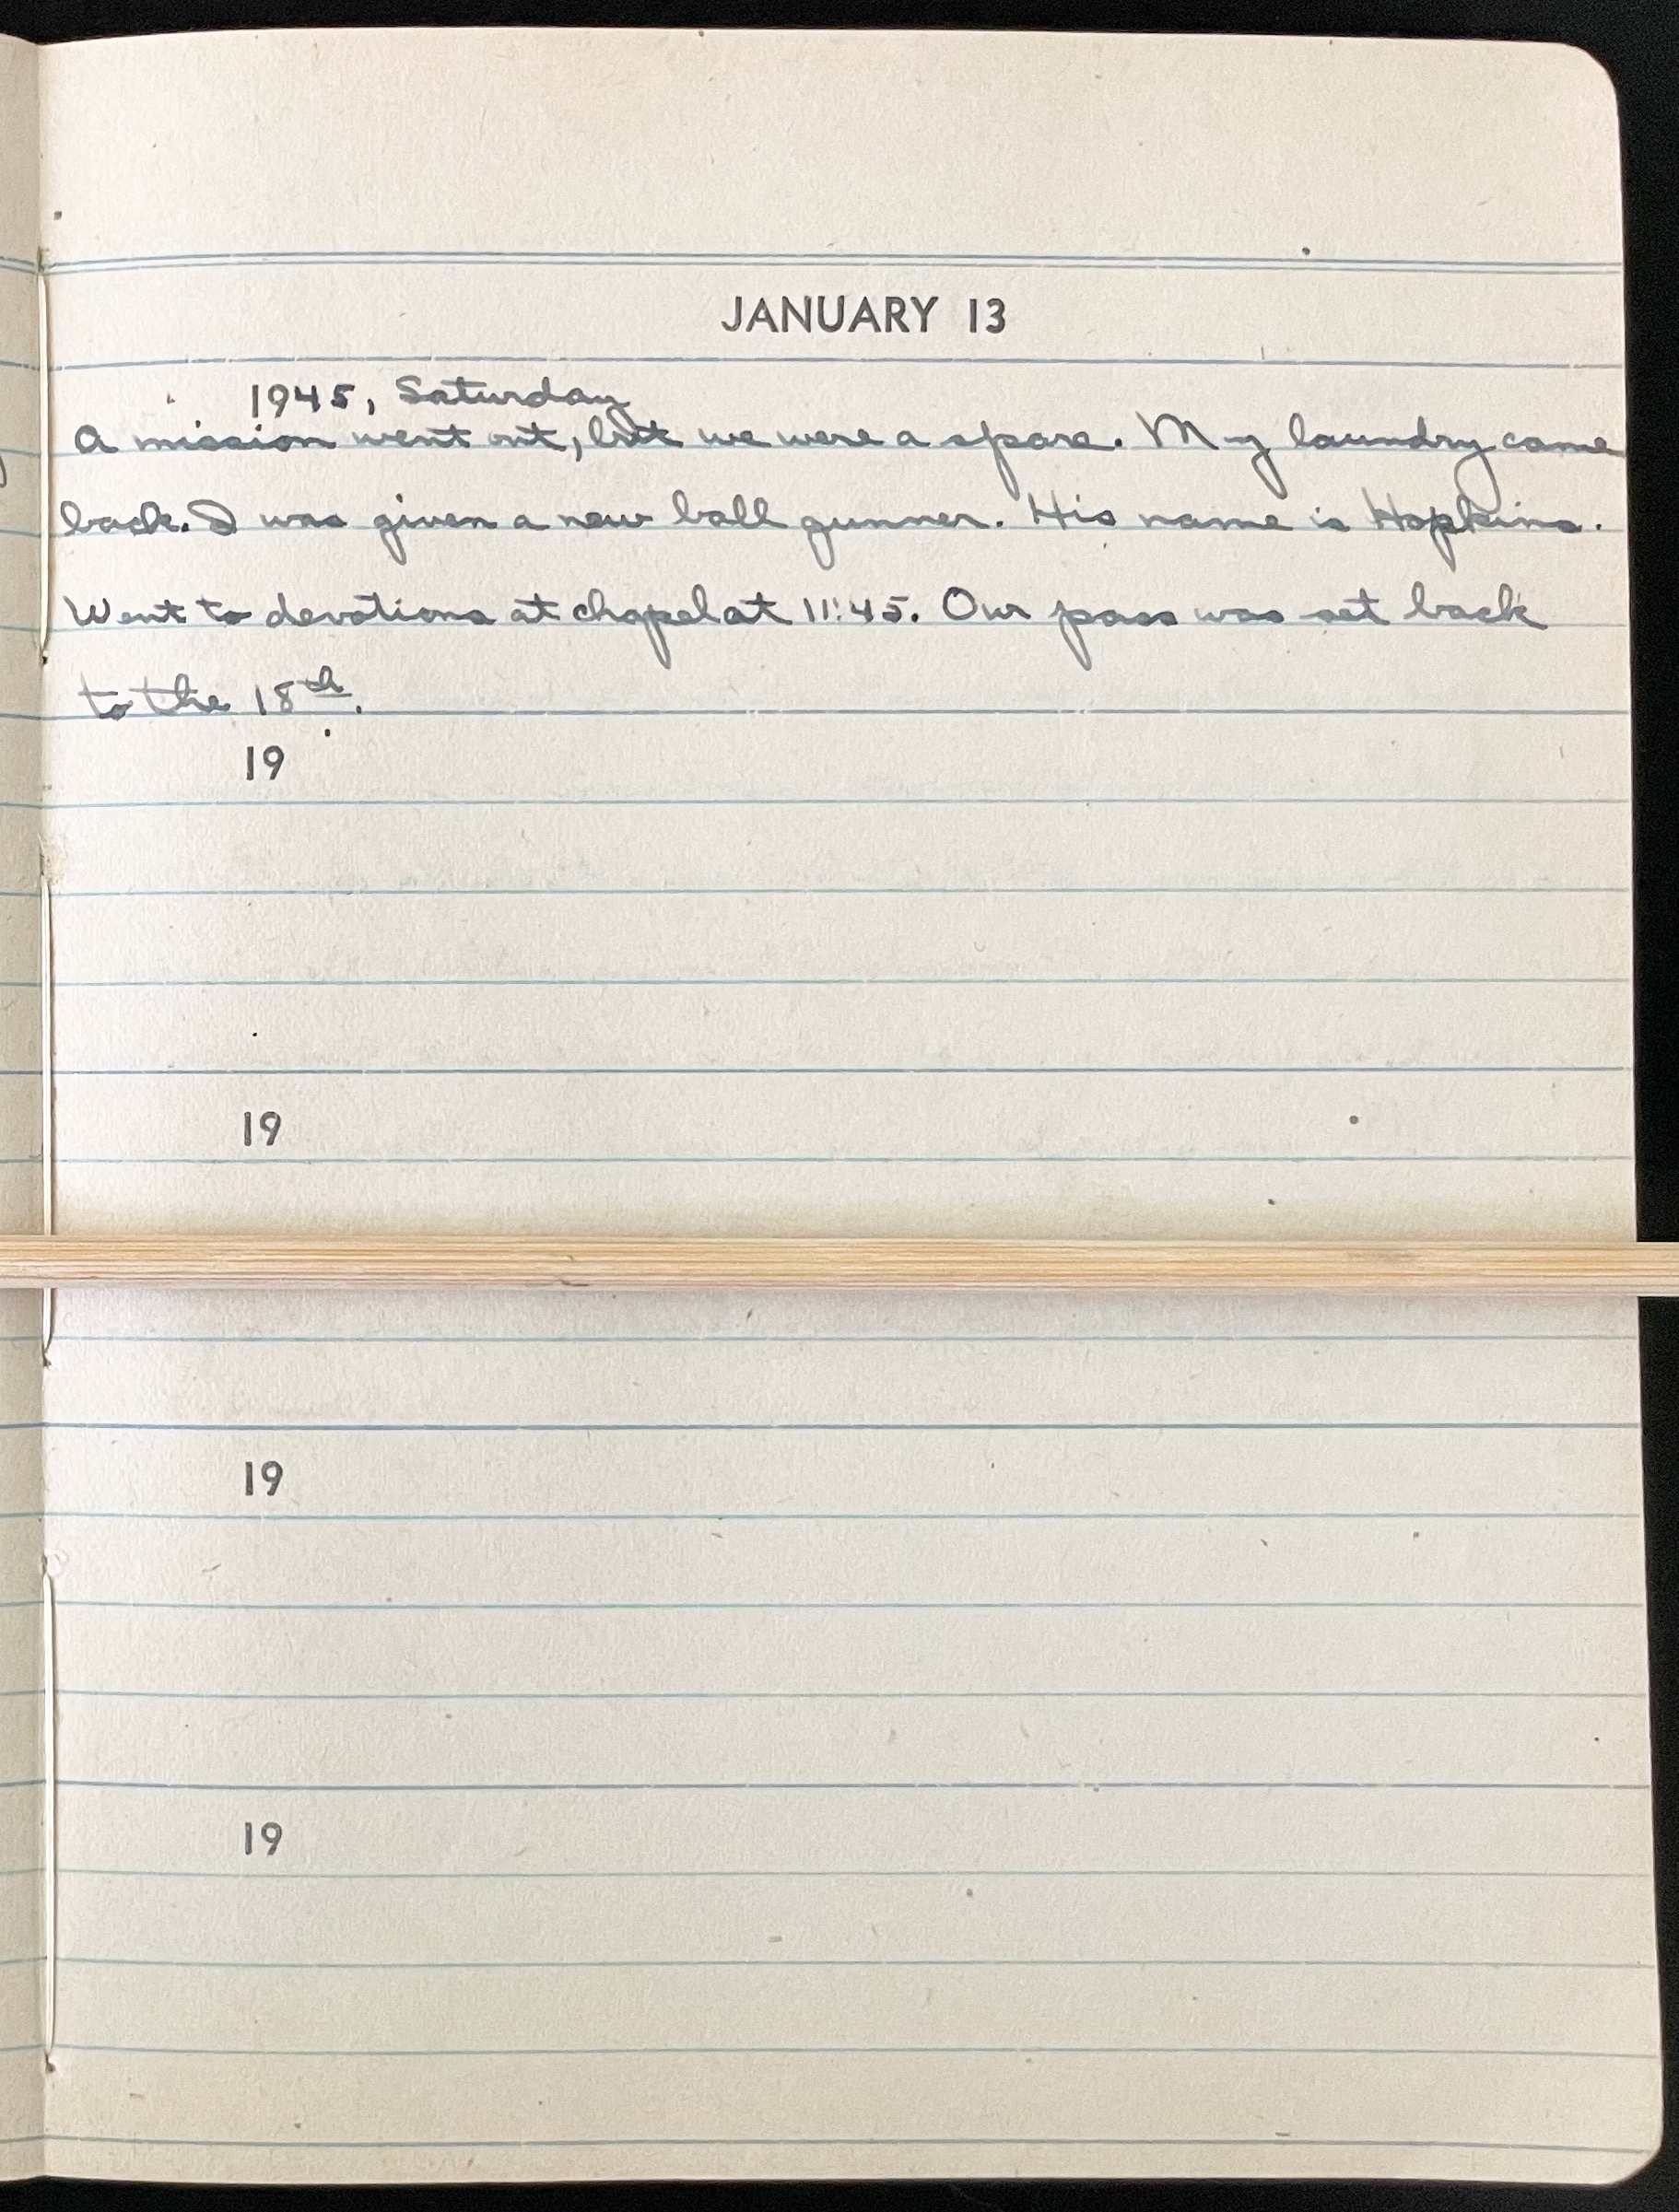 JANUARY 13
1945, Saturday
A mission went out, but we were a spare. My laundry came
back. I was given a new ball gunner. His name is Hopkins.
Went to devotions at chapel at 11:45. Our pass was set back
to the 18th.
19
19
19
19